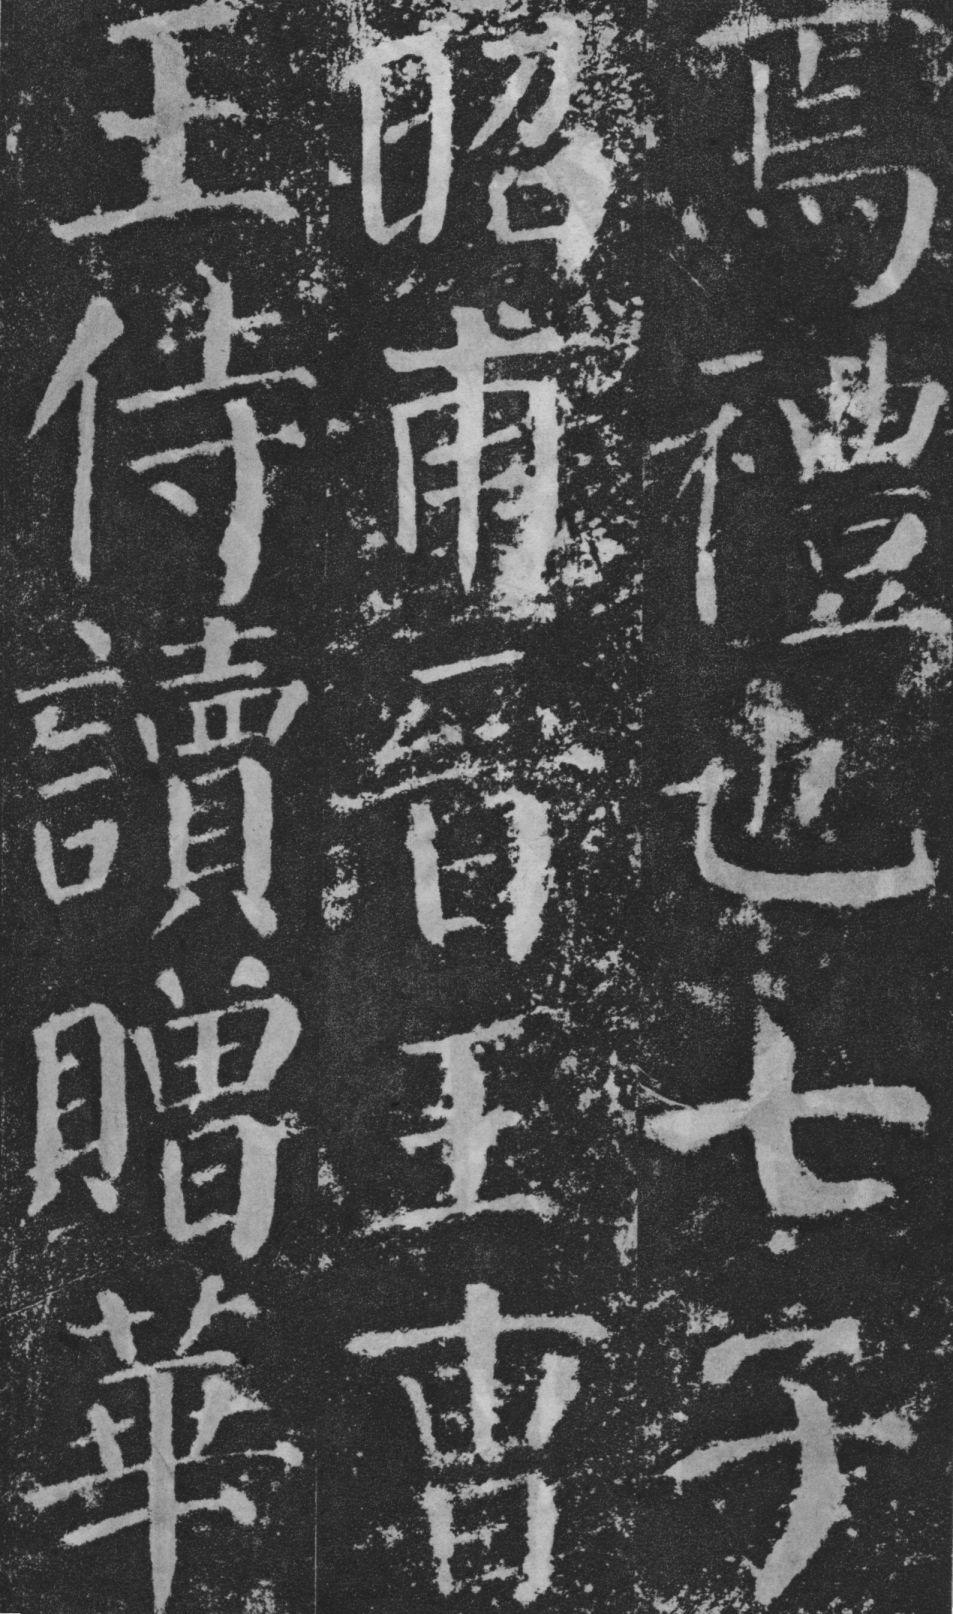 焉禮也七子
昭甫晉王曺
王侍讀贈華